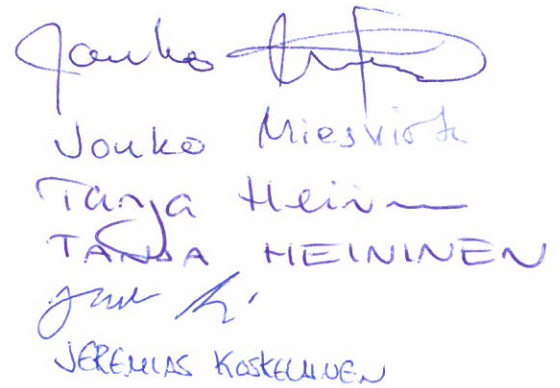 Jouko
Jouko Miesvirta
Tanja Hein
TANJA HEININEN
JEREMIAS KOSKELAINEN